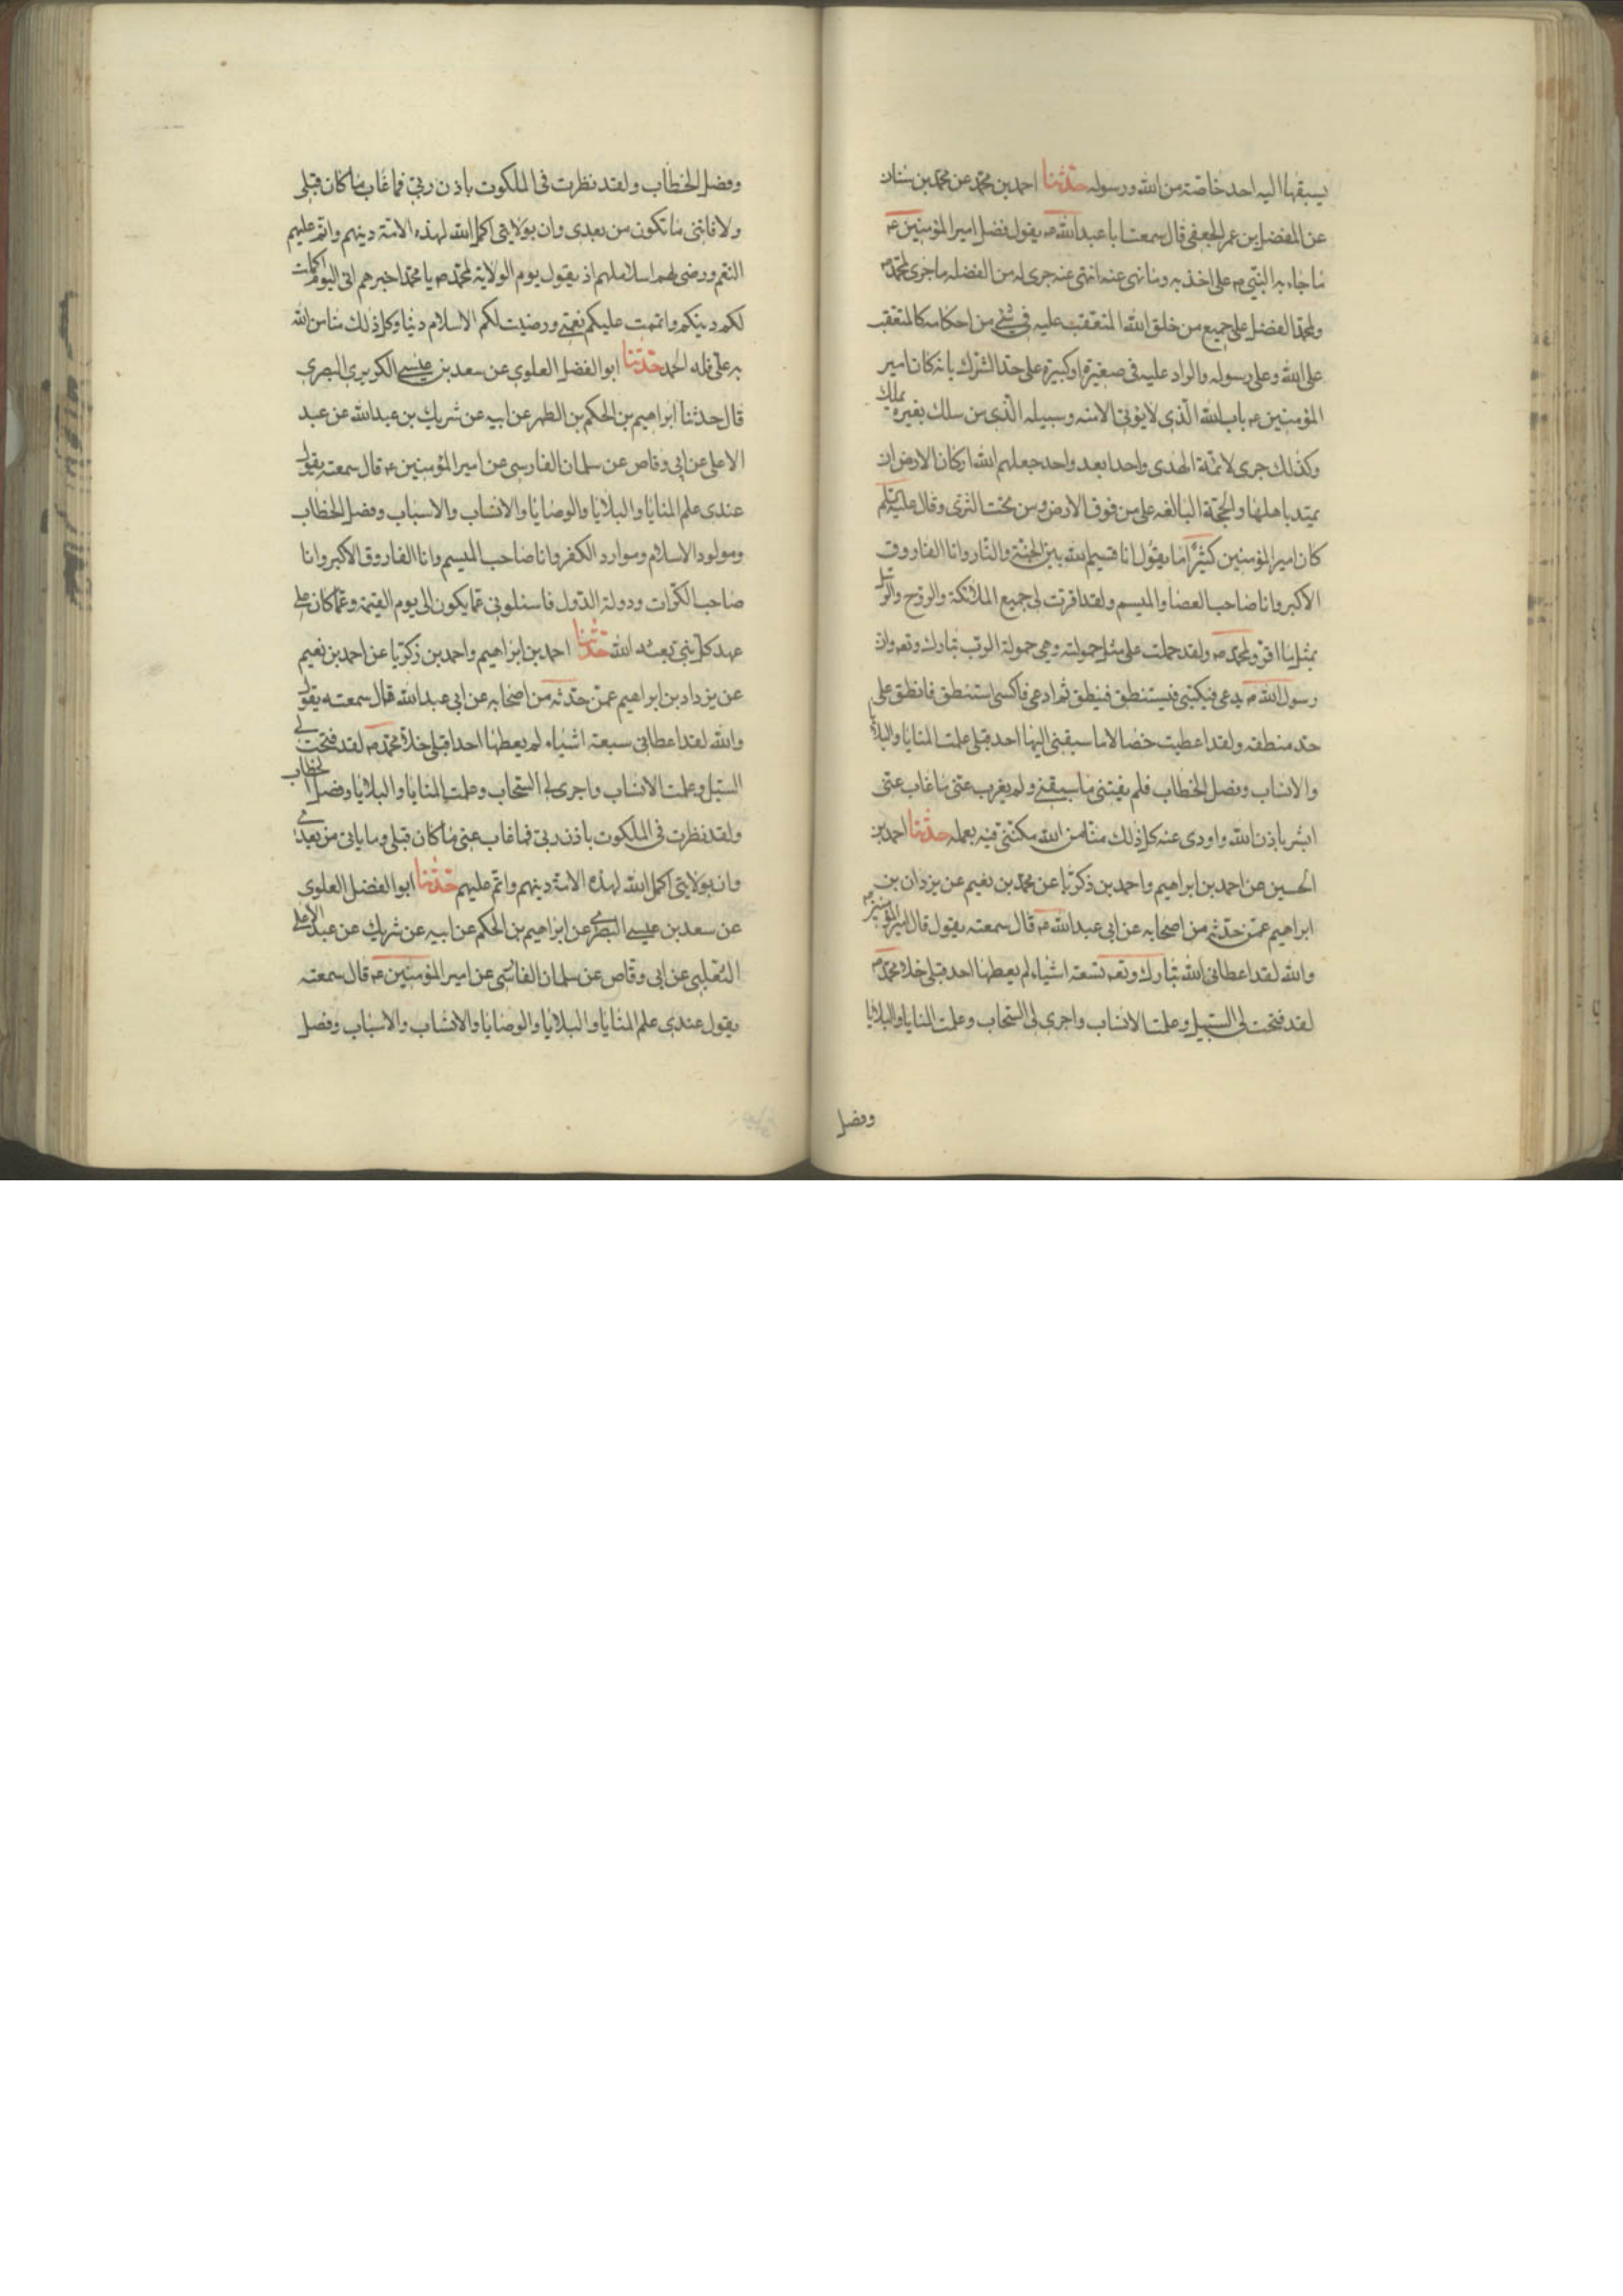 يسبقها اليه احد خاصة من الله ورسوله حدثنا احمد بن محمد عن محمد بن سنان
عن المفضل بن عمر الجعفي قال سمعت ابا عبد الله ع يقول فضل امير المؤمنين ع
ما جاء به النبي ص على اخذ به وما نهى عنه انتهى عنه جرى له من الفضل ما جرى لمحمد ص
ولمحمد الفضل على جميع من خلق الله المتعقب عليه في شئ من احكامه كالمتعقب
على الله وعلى رسوله والراد عليه في صغيرة او كبيرة على حد الشرك بانه كان امير
المؤمنين ع باب الله الذي لا يؤتى الا منه وسبيله الذي من سلك بغيره يهلك
وكذلك جرى لائمة الهدى واحدا بعد واحد جعلهم الله اركان الارض ان
يميد باهلها والحجة البالغه على من فوق الارض ومن تحت الثرى وقال
كان امير المؤمنين كثيرا ما يقول انا قسيم الله بين الجنة والنار وانا الفاروق
الاكبر وانا صاحب العصا والميسم ولقد اقرت لي جميع الملائكة والروح والرسل
بمثل ما اقر ولمحمد ص ولقد حملت على مثل حمولته وهي حمولة الرب تبارك وتعه وان
رسول الله ص يدعى فيكتسى فيستنطق فينطق ثم ادعى فاكسى استنطق فانطق على
حد منطقه ولقد اعطيت خصالا ما سبقني اليها احد قبلى علمت المنايا والبلايا
والانساب وفصل الخطاب فلم يفتني ما سبقني ولم يغرب عني ما غاب عني
ابشر باذن الله واودى عنه كل ذلك منا من الله مكنني فيه بعمله حدثنا احمد بن
الحسين عن احمد بن ابراهيم واحمد بن زكريا عن محمد بن نعيم عن يزدان بن
ابراهيم عمن حدثه من اصحابه عن ابي عبد الله ع قال سمعته يقول قال امير المؤمنين ع
والله لقد اعطاني الله تبارك وتعه تسعة اشياء لم يعطها احد قبلي خلا محمد ص
لقد فتحت لي السبيل وعلمت الانساب واجرى لي السحاب وعلمت المنايا والبلايا
وفصل
وفصل الخطاب ولقد نظرت في الملكوت باذن ربي فما غاب ما كان قبلي
ولا فاتني ما تكون من بعدى وان بولايتي اكمل الله لهذه الامة دينهم واتم عليهم
النعم ورضى لهم اسلامهم اذ يقول يوم الولاية لمحمد ص يا محمد اخبرهم اني اليوم اكملت
لكم دينكم واتممت عليكم نعمتي ورضيت لكم الاسلام دينا وكل ذلك منا من الله
به على فله الحمد حدثنا ابو الفضل العلوي عن سعد بن عيسى الكربزي البصري
قال حدثنا ابراهيم بن الحكم بن الظهر عن ابيه عن شريك بن عبد الله عن عبد
الاعلى عن ابي وقاص عن سلمان الفارسي عن امير المؤمنين ع قال سمعته يقول
عندي علم المنايا والبلايا والوصايا والانساب والاسباب وفصل الخطاب
ومولود الاسلام وموارد الكفر وانا صاحب الميسم وانا الفاروق الاكبر وانا
صاحب الكرات ودولة الدول فاسئلوني عما يكون الى يوم القيمة وعما كان على
عهد كل نبي بعثه الله حدثنا احمد بن ابراهيم واحمد بن زكريا عن احمد بن نعيم
عن يزداد بن ابراهيم عمن حدثه من اصحابه عن ابي عبد الله قال سمعته يقول
والله لقد اعطاني سبعة اشياء لم يعطها احدا قبلي خلا محمد ص لقد فتحت لي
السبل وعلمت الانساب واجرى لي السحاب وعلمت المنايا والبلايا وفصل الخطاب
ولقد نظرت في الملكوت باذن ربي فما غاب عني ما كان قبلي وما ياتي من بعدي
وان بولايتي اكمل الله لهذه الامة دينهم واتم عليهم حدثنا ابو الفضل العلوي
عن سعد بن عيسى البصري عن ابراهيم بن الحكم عن ابيه عن شريك عن عبد الاعلى
الثعلبي عن ابي وقاص عن سلمان الفارسي عن امير المؤمنين ع قال سمعته
يقول عندي علم المنايا والبلايا والوصايا والانساب والاسباب وفصل